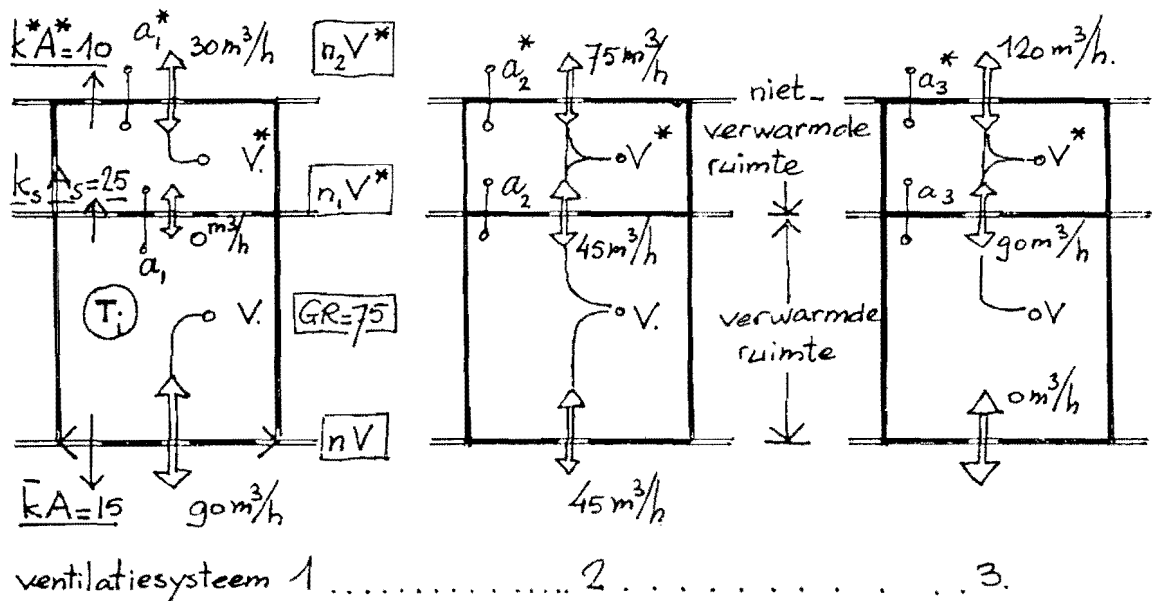 k*A*=10
a₁*
30 m³/h
n₂V*
V.*
k_s A_s=25
n₁V*
a₁
0 m³/h
T_i
V.
GR=75
nV
k̄A=15
90 m³/h
a₂*
75 m³/h
V*
a₂
45 m³/h
V.
45 m³/h
niet-
verwarmde
ruimte
verwarmde
ruimte
a₃*
120 m³/h.
V*
a₃
90 m³/h
V
0 m³/h
ventilatiesysteem 1 .............. 2 . . . . . . . . . . . 3.